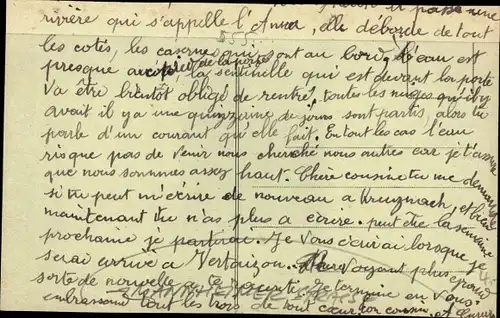 rivière qui s'appelle l', elle déborde de tout
les cotés, les caserne qui sont au bord, l'eau est
presque au près de la porte la sentinelle qui est devant la porte
Va être bientot obligé de rentré, toutes les nuages qu'il y
avait il y a une quinzaine de jours sont partis, alors tu
parle d'un courant qu'elle fait. En tout les cas l'eau
risque pas de venir nous cherché nous autres car je t'assure
que nous sommes assez haut. Chère cousine tu me demande
si tu peut m'écrire de nouveau a Kreuznach, et bien
maintenant tu n'as plus a écrire. peut être la semaine
prochaine je partirai. Je vous écrirai lorsque je
serai arrivé a Vertaizon. voyant plus grand
sorte de nouvelle je termine en vous
embrassant tout les trois de tout coeur ton cousin
MANNHEIMER STRASSE